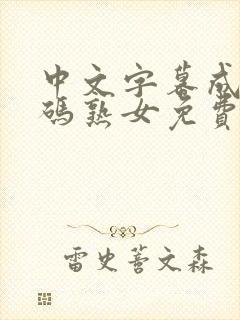 中文字幕成
码熟女免費
雷史蒈文森